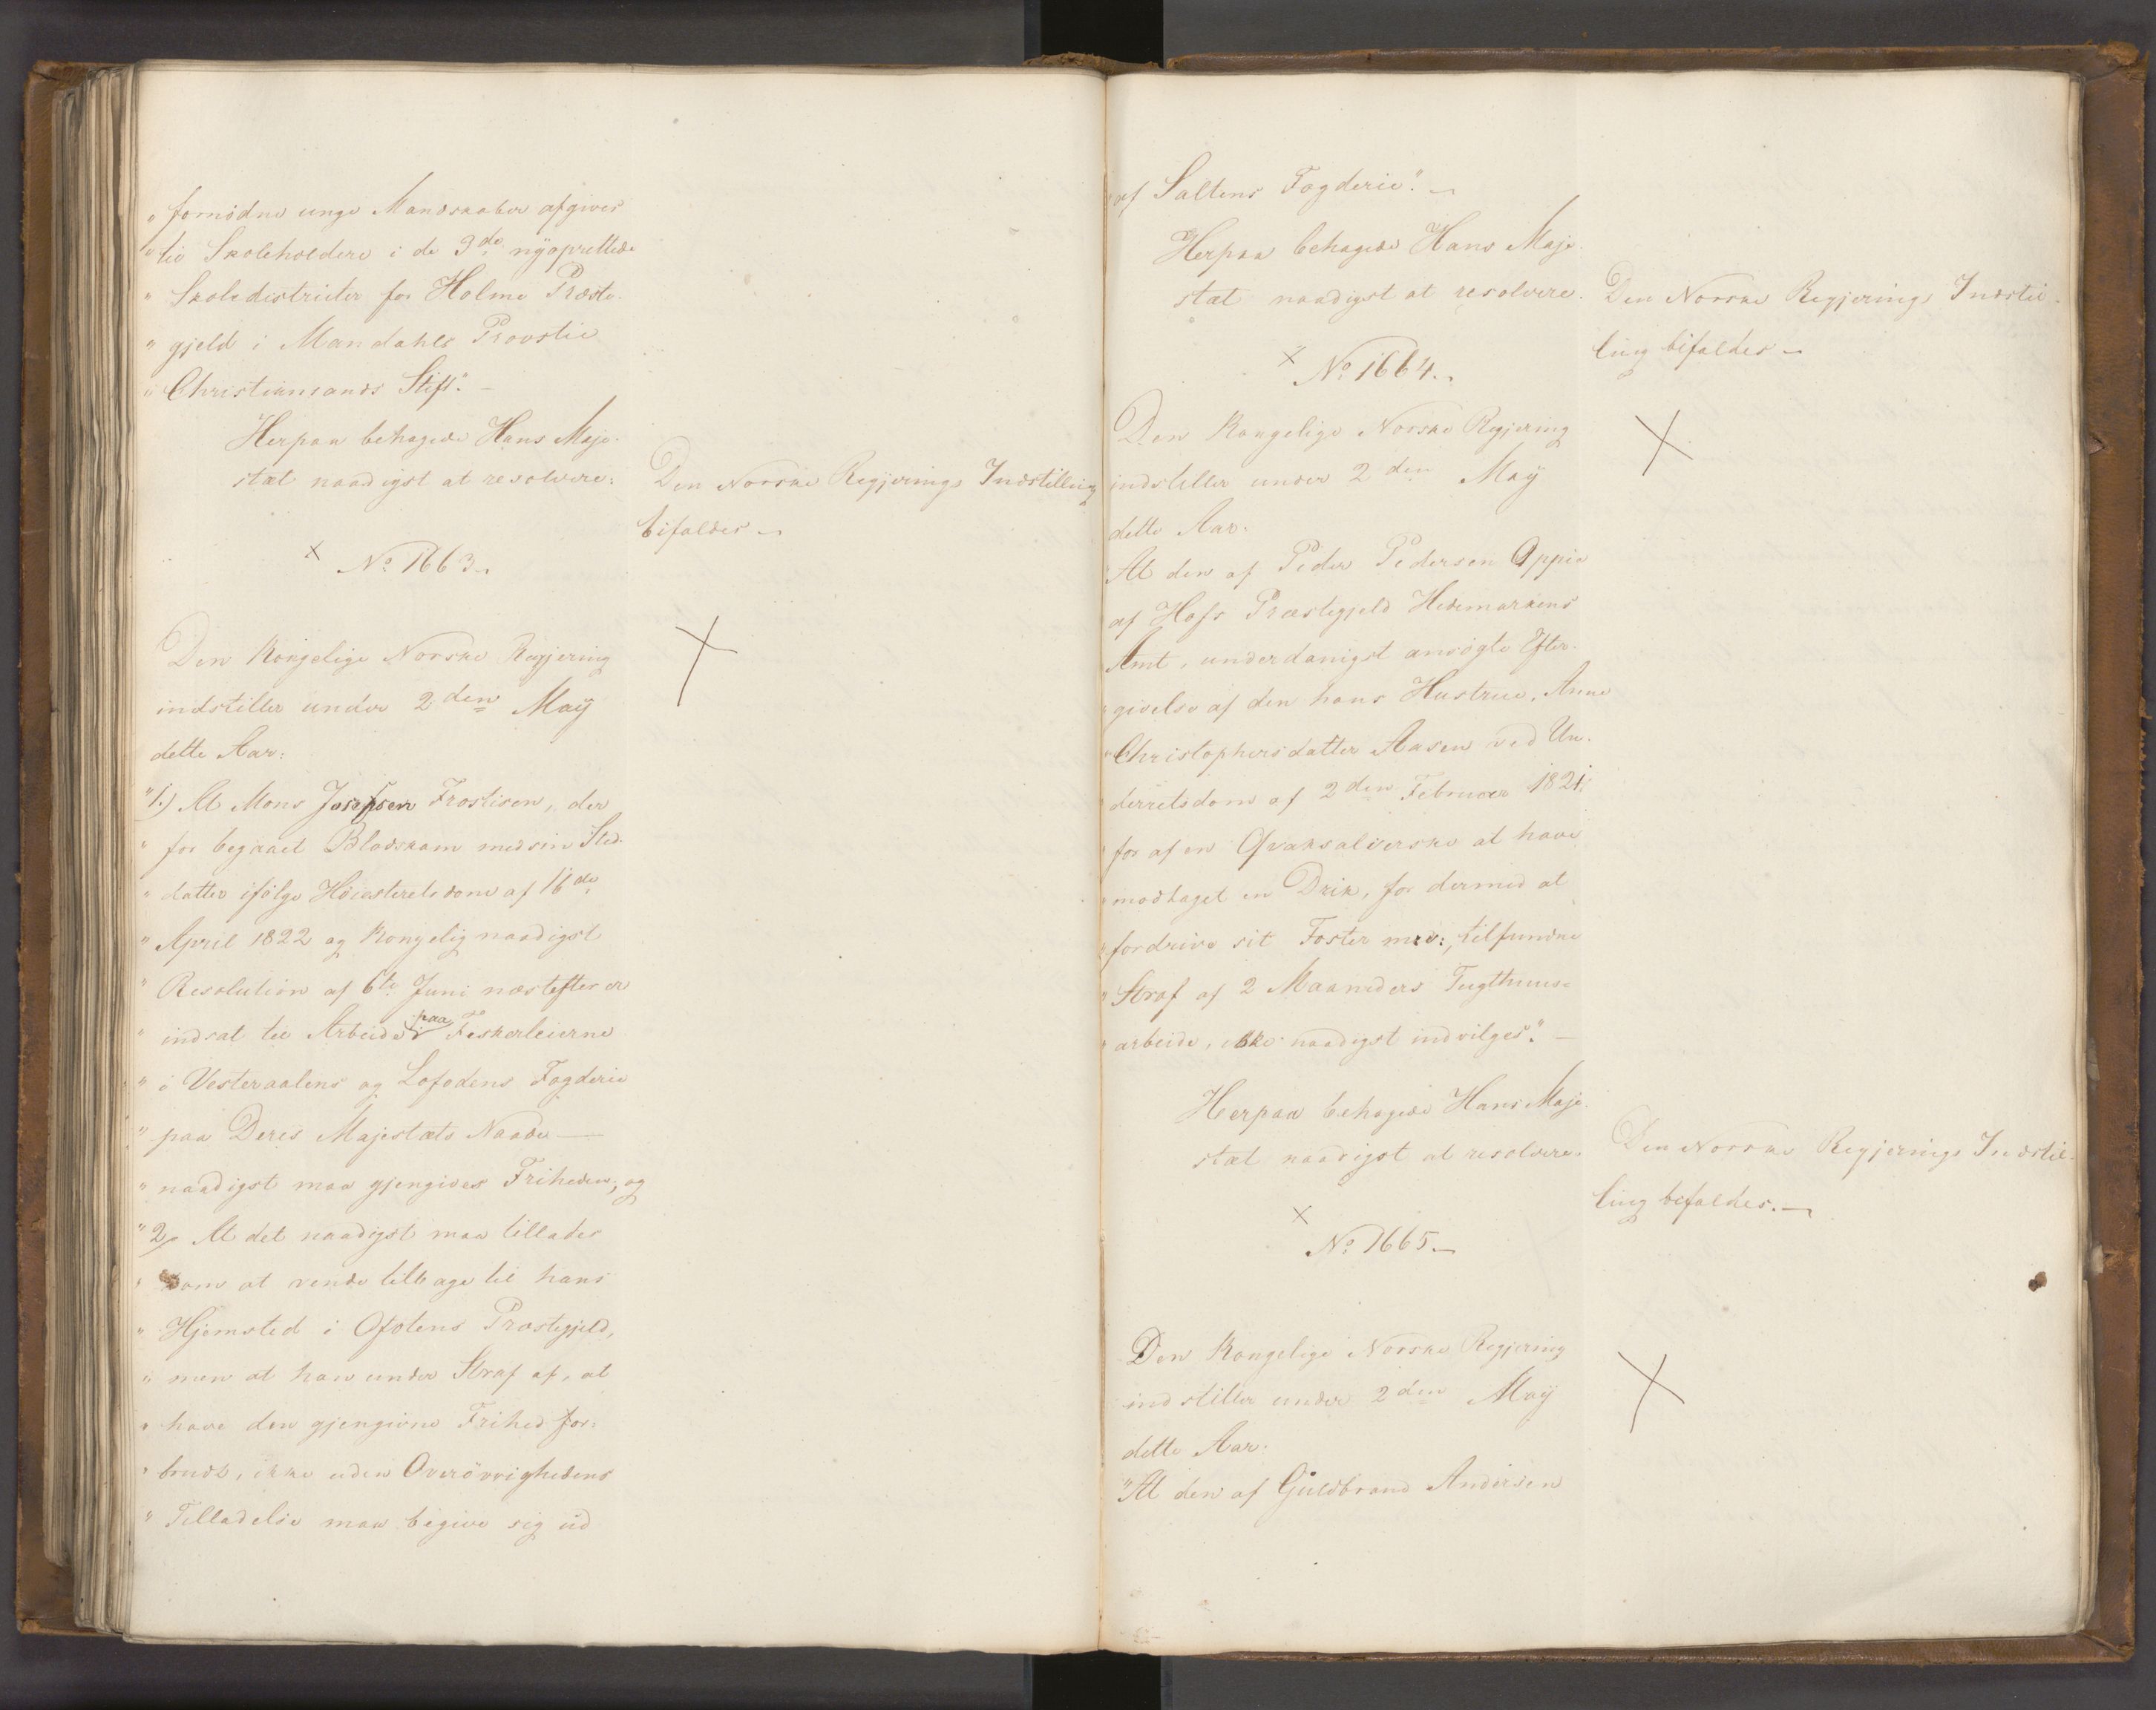 "fornödne unge Mandskaber afgives
"til Skoleholdere i de 3de nÿoprettede
"Skoledistricter for Holme Præste-
"gjeld i Mandahls Provstie
"Christiansands Stift." –
Herpaa behagede Hans Maje-
stæt naadigst at resolvere:
Den Norske Regjerings Indstilling
bifaldes –
x No 1663.
Den Kongelige Norske Regjering
indstiller under 2den Maÿ
dette Aar:
"1.) At Mons Josephsen Frostisen, der
"for begaaet Blodskam med sin Sted-
"datter ifölge Höiesteretsdom af 16de
"April 1822 og Kongelig naadigst
"Resolution af 6te Juni næstefter er
"indsat til Arbeide paa Feskerleierne
"i Vesteraalens og Lofodens Fogderie
"paa Deres Majestæts Naade —
"naadigst maa gjengives Friheden; og
"2) At det naadigst maa tillades
"ham at vende tilbage til hans
"Hjemsted i Ofotens Præstegjeld,
"men at han under Straf af, at
"have den gjengivne Frihed for-
"brudt, ikke uden Overövrighedens
"Tilladelse maa begive sig ud
"af Saltens Fogderie." –
Herpaa behagede Hans Maje-
stæt naadigst at resolvere.
Den Norske Regjerings Indstil-
ling bifaldes –
x No 1664.
Den Kongelige Norske Regjering
indstiller under 2den Maÿ
dette Aar.
"At den af Peder Pedersen Oppie
"af Hofs Præstegjeld Hedemarkens
"Amt, underdanigst ansögte Efter-
"givelse af den hans Hustrue, Anne
"Christophersdatter Aasen ved Un-
"derretsdom af 2den Februar 1821
"for af en Qvaksalverske at have
"modtaget en Drik, for dermed at
"fordrive sit Foster med:, tilfundne
"Straf af 2 Maaneders Tugthuus-
"arbeide, ikke naadigst indvilges." –
Herpaa behagede Hans Maje-
stæt naadigst at resolvere.
Den Norske Regjerings Indstil-
ling bifaldes. –
x
No 1665 –
Den Kongelige Norske Regjering
indstiller under 2den Maÿ
dette Aar.
"At den af Guldbrand Andersen